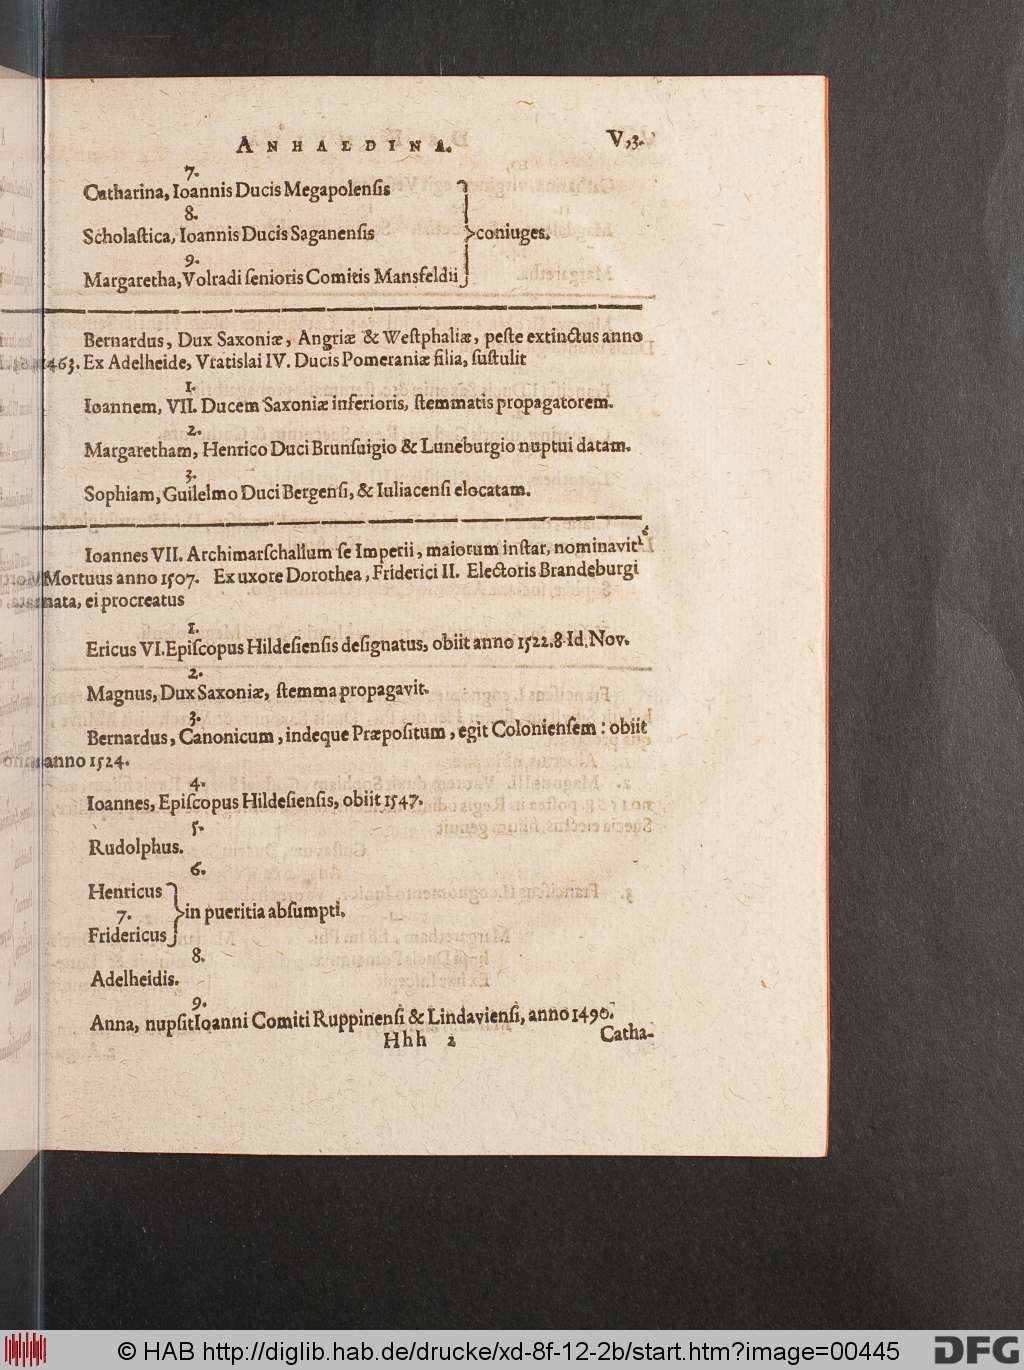 ANHALDINA. V,3.
7.
Catharina, Ioannis Ducis Megapolensis
8.
Scholastica, Ioannis Ducis Saganensis
coniuges.
9.
Margaretha, Volradi senioris Comitis Mansfeldii
Bernardus, Dux Saxoniæ, Angriæ & Westphaliæ, peste extinctus anno
1463. Ex Adelheide, Vratislai IV. Ducis Pomeraniæ filia, sustulit
1.
Ioannem, VII. Ducem Saxoniæ inferioris, stemmatis propagatorem.
2.
Margaretham, Henrico Duci Brunsuigio & Luneburgio nuptui datam.
3.
Sophiam, Guilelmo Duci Bergensi, & Iuliacensi elocatam.
Ioannes VII. Archimarschallum se Imperii, maiorum instar, nominavit.
Mortuus anno 1507. Ex uxore Dorothea, Friderici II. Electoris Brandeburgi
nata, ei procreatus
1.
Ericus VI. Episcopus Hildesiensis designatus, obiit anno 1522. 8. Id. Nov.
2.
Magnus, Dux Saxoniæ, stemma propagavit.
3.
Bernardus, Canonicum, indeque Præpositum, egit Coloniensem: obiit
anno 1524.
4.
Ioannes, Episcopus Hildesiensis, obiit 1547.
5.
Rudolphus.
6.
Henricus
in pueritia absumpti.
7.
Fridericus
8.
Adelheidis.
9.
Anna, nupsit Ioanni Comiti Ruppinensi & Lindaviensi, anno 1490.
Hhh 2 Catha-
© HAB http://diglib.hab.de/drucke/xd-8f-12-2b/start.htm?image=00445
DFG